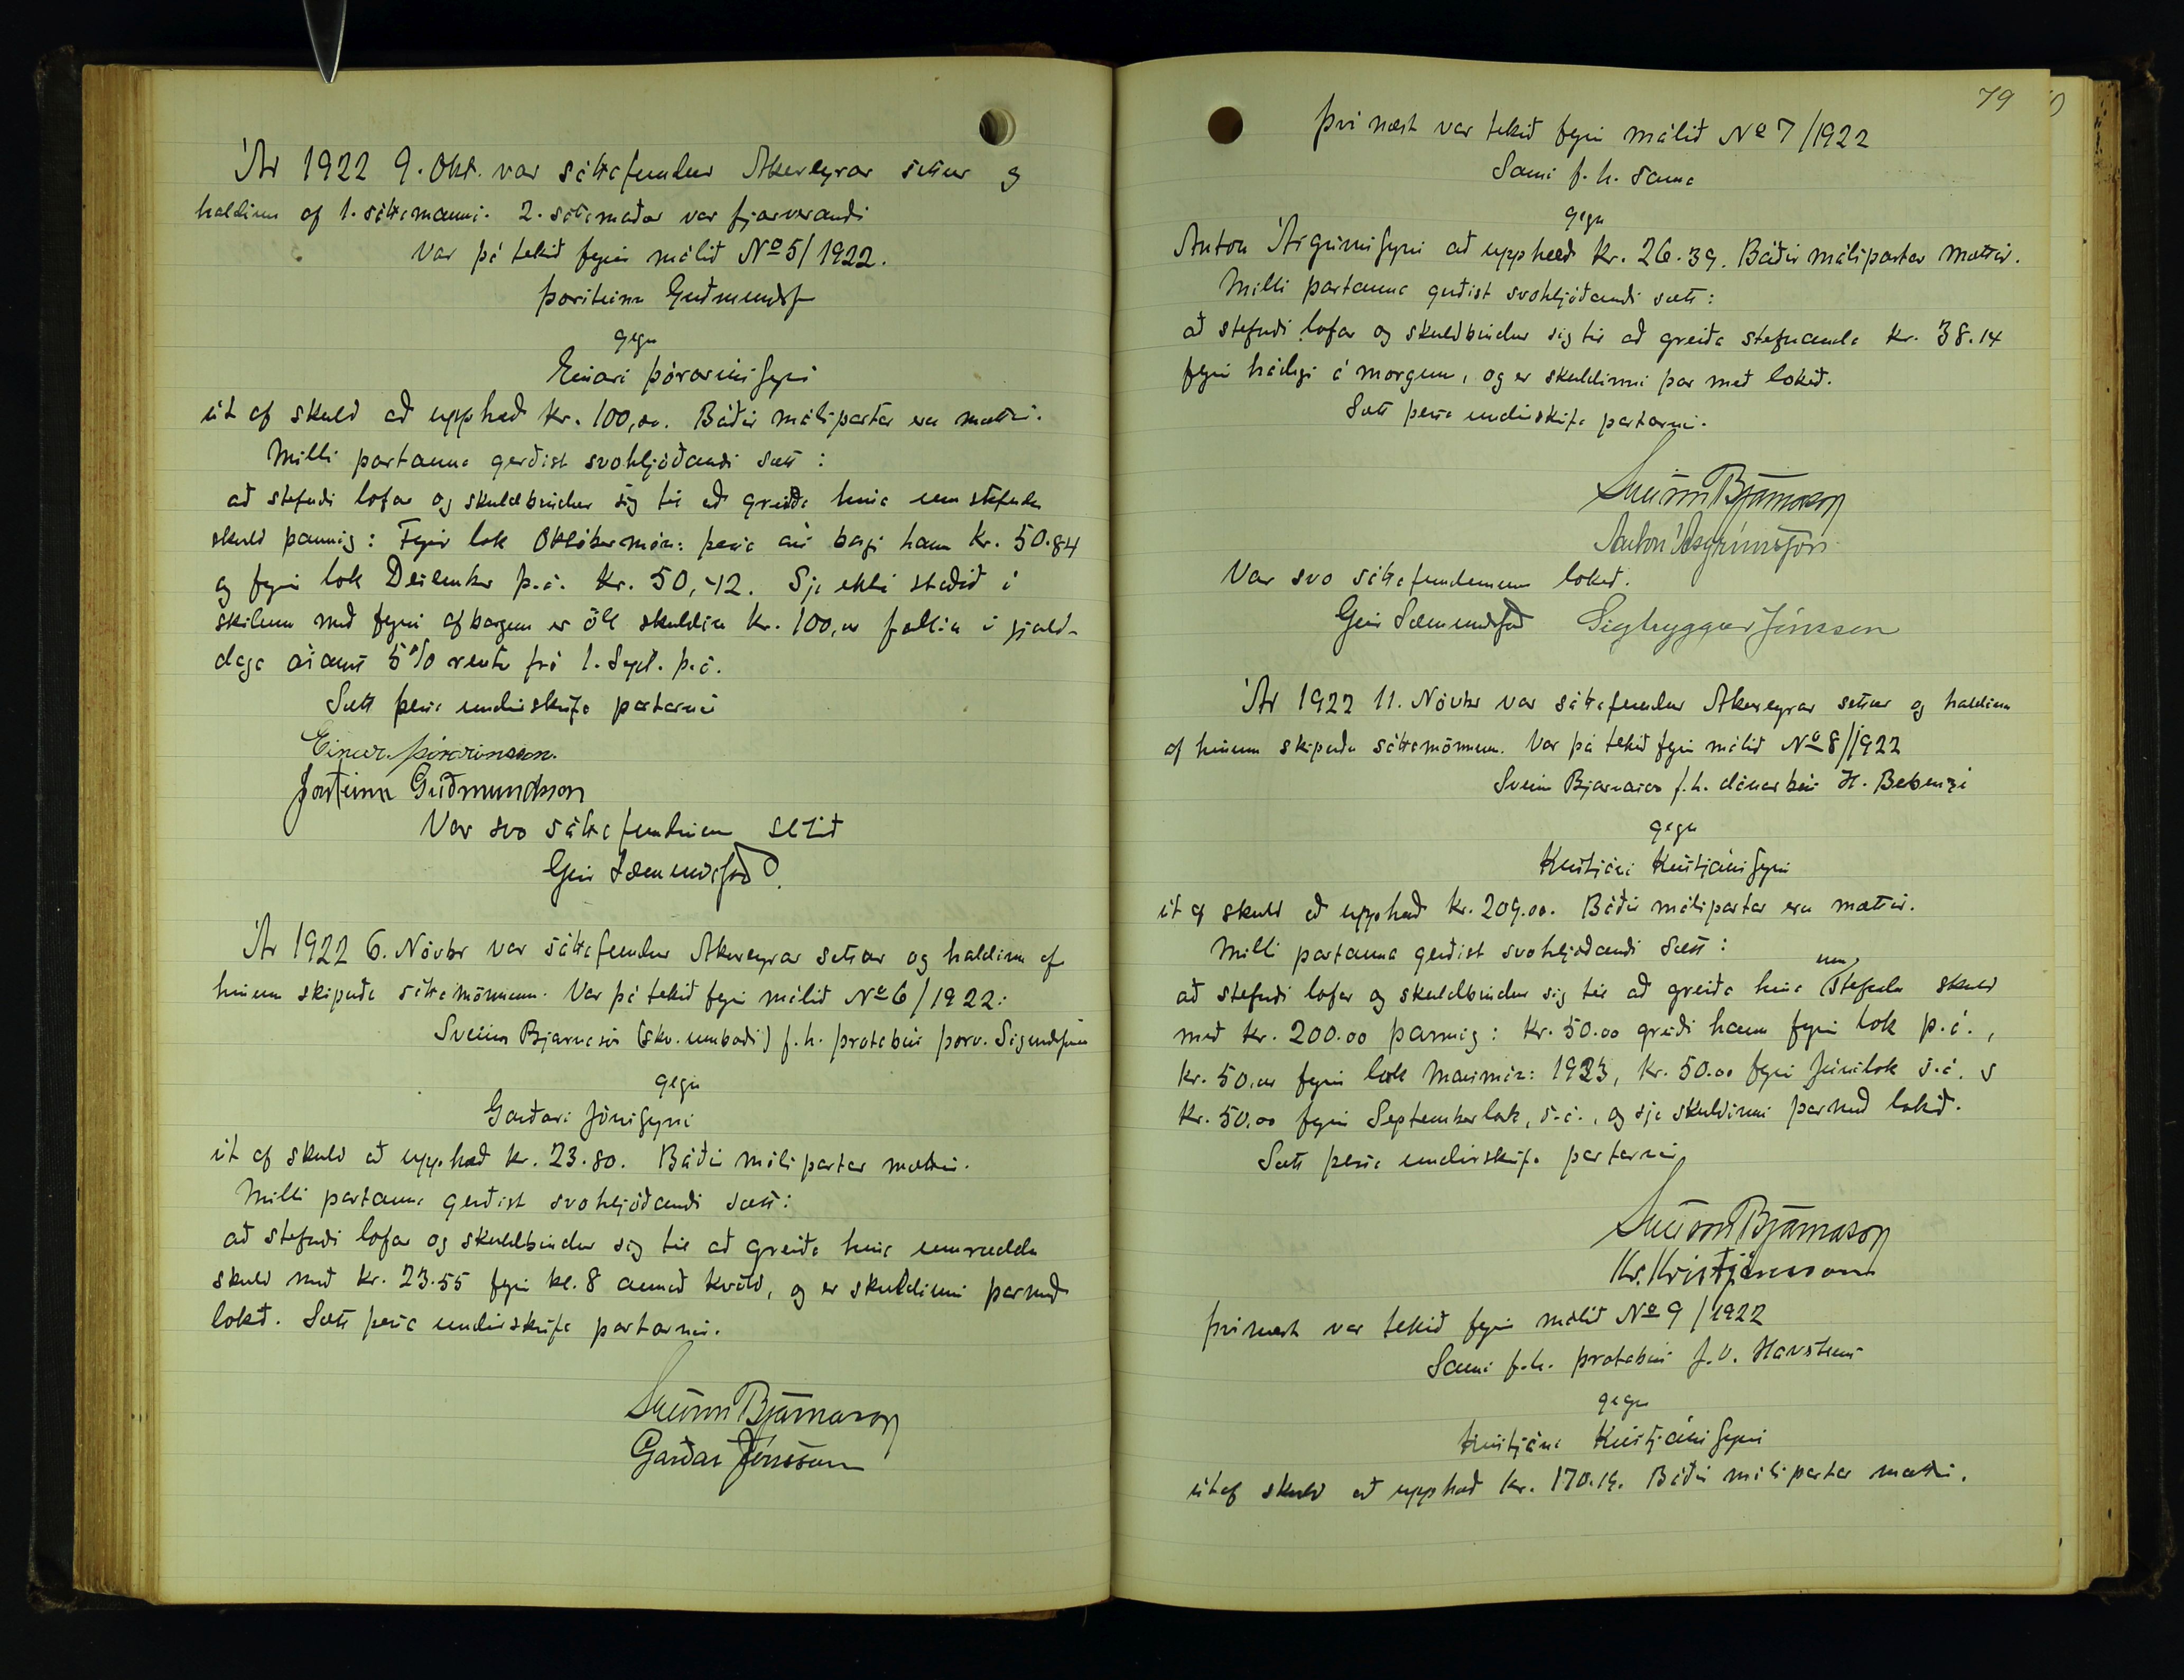 Ár 1922 9. Okt. var sáttafundur Akureyrar settur og
haldinn af 1. sáttamanni. 2. sáttamaður var fjarverandi
Var þá tekið fyrir málið No 5/1922.
Þorsteinn Guðmundss
gegn
Einari Þórarinssyni
út af skuld að upphæð kr. 100,00. Báðir málspartar eru mættir.
Milli partanna gerðist svohljóðandi sætt:
að stefndi lofar og skuldbindur sig til að greiða hina umstefndu
skuld þannig: Fyrir lok Októbermán: þessa árs borgi hann kr. 50.84
og fyrir lok Desember þ.á. kr. 50,42. Sje ekki staðið í
skilum með fyrri afborgun er öll skuldin kr. 100,00 fallin í gjald-
daga ásamt 5% rentu frá 1. Sept. þ.á.
Sætt þessa undirskrifa partarnir
Einar Þórarinsson.
Þorsteinn Guðmundsson
Var svo sáttafundinum slitið
Geir Sæmundsson
Ár 1922 6. Nóvbr var sáttafundur Akureyrar settur og haldinn af
hinum skipuðu sáttamönnum. Var þá tekið fyrir málið No 6/1922:
Sveinn Bjarnason (skv. umboði) f.h. þrotabús Þorv. Sigurðssonar
gegn
Garðari Jónssyni
út af skuld að upphæð kr. 23.80. Báðir málspartar mættir.
Milli partanna gerðist svohljóðandi sætt:
að stefndi lofar og skuldbindur sig til að greiða hina umræddu
skuld með kr. 23.55 fyrir kl. 8 annað kvöld, og er skuldinni þarmeð
lokið. Sætt þessa undirskrifa partarnir.
Sveinn Bjarnason
Garðar Jónsson
79
Því næst var tekið fyrir málið No 7/1922
Sami f.h. sama
gegn
Anton Ásgrímssyni að upphæð kr. 26.39. Báðir málspartar mættir.
Milli partanna gerðist svohljóðandi sætt:
að stefndi lofar og skuldbindur sig til að greiða stefnanda kr. 38.14
fyrir hádegi á morgun, og er skuldinni þar með lokið.
Sætt þessa undirskrifa partarnir.
Sveinn Bjarnason
Anton Ásgrímsson
Var svo sáttafundinum lokið.
Geir Sæmundsson Sigtryggur Jónsson
Ár 1922 11. Nóvbr var sáttafundur Akureyrar settur og haldinn
af hinum skipuðu sáttamönnum. Var þá tekið fyrir málið No 8/1922
Sveinn Bjarnason f.h. dánarbús H. Bebensee
gegn
Kristjáni Kristjánssyni
út af skuld að upphæð kr. 209.00. Báðir málspartar eru mættir.
Milli partanna gerðist svohljóðandi sætt:
að stefndi lofar og skuldbindur sig til að greiða hina umstefndu skuld
með kr. 200.00 þannig: kr. 50.00 greiði hann fyrir lok þ.á.,
kr. 50.00 fyrir lok Marsmán: 1923, kr. 50.00 fyrir Júnílok s.á. og
kr. 50.00 fyrir Septemberlok, s.á., og sje skuldinni þarmeð lokið.
Sætt þessa undirskrifa partarnir
Sveinn Bjarnason
Kr. Kristjánsson
Þvínæst var tekið fyrir málið No 9/1922
Sami f.h. þrotabús J.V. Havsteens
gegn
Kristjáni Kristjánssyni
útaf skuld að upphæð kr. 170.19. Báðir málspartar mættir.